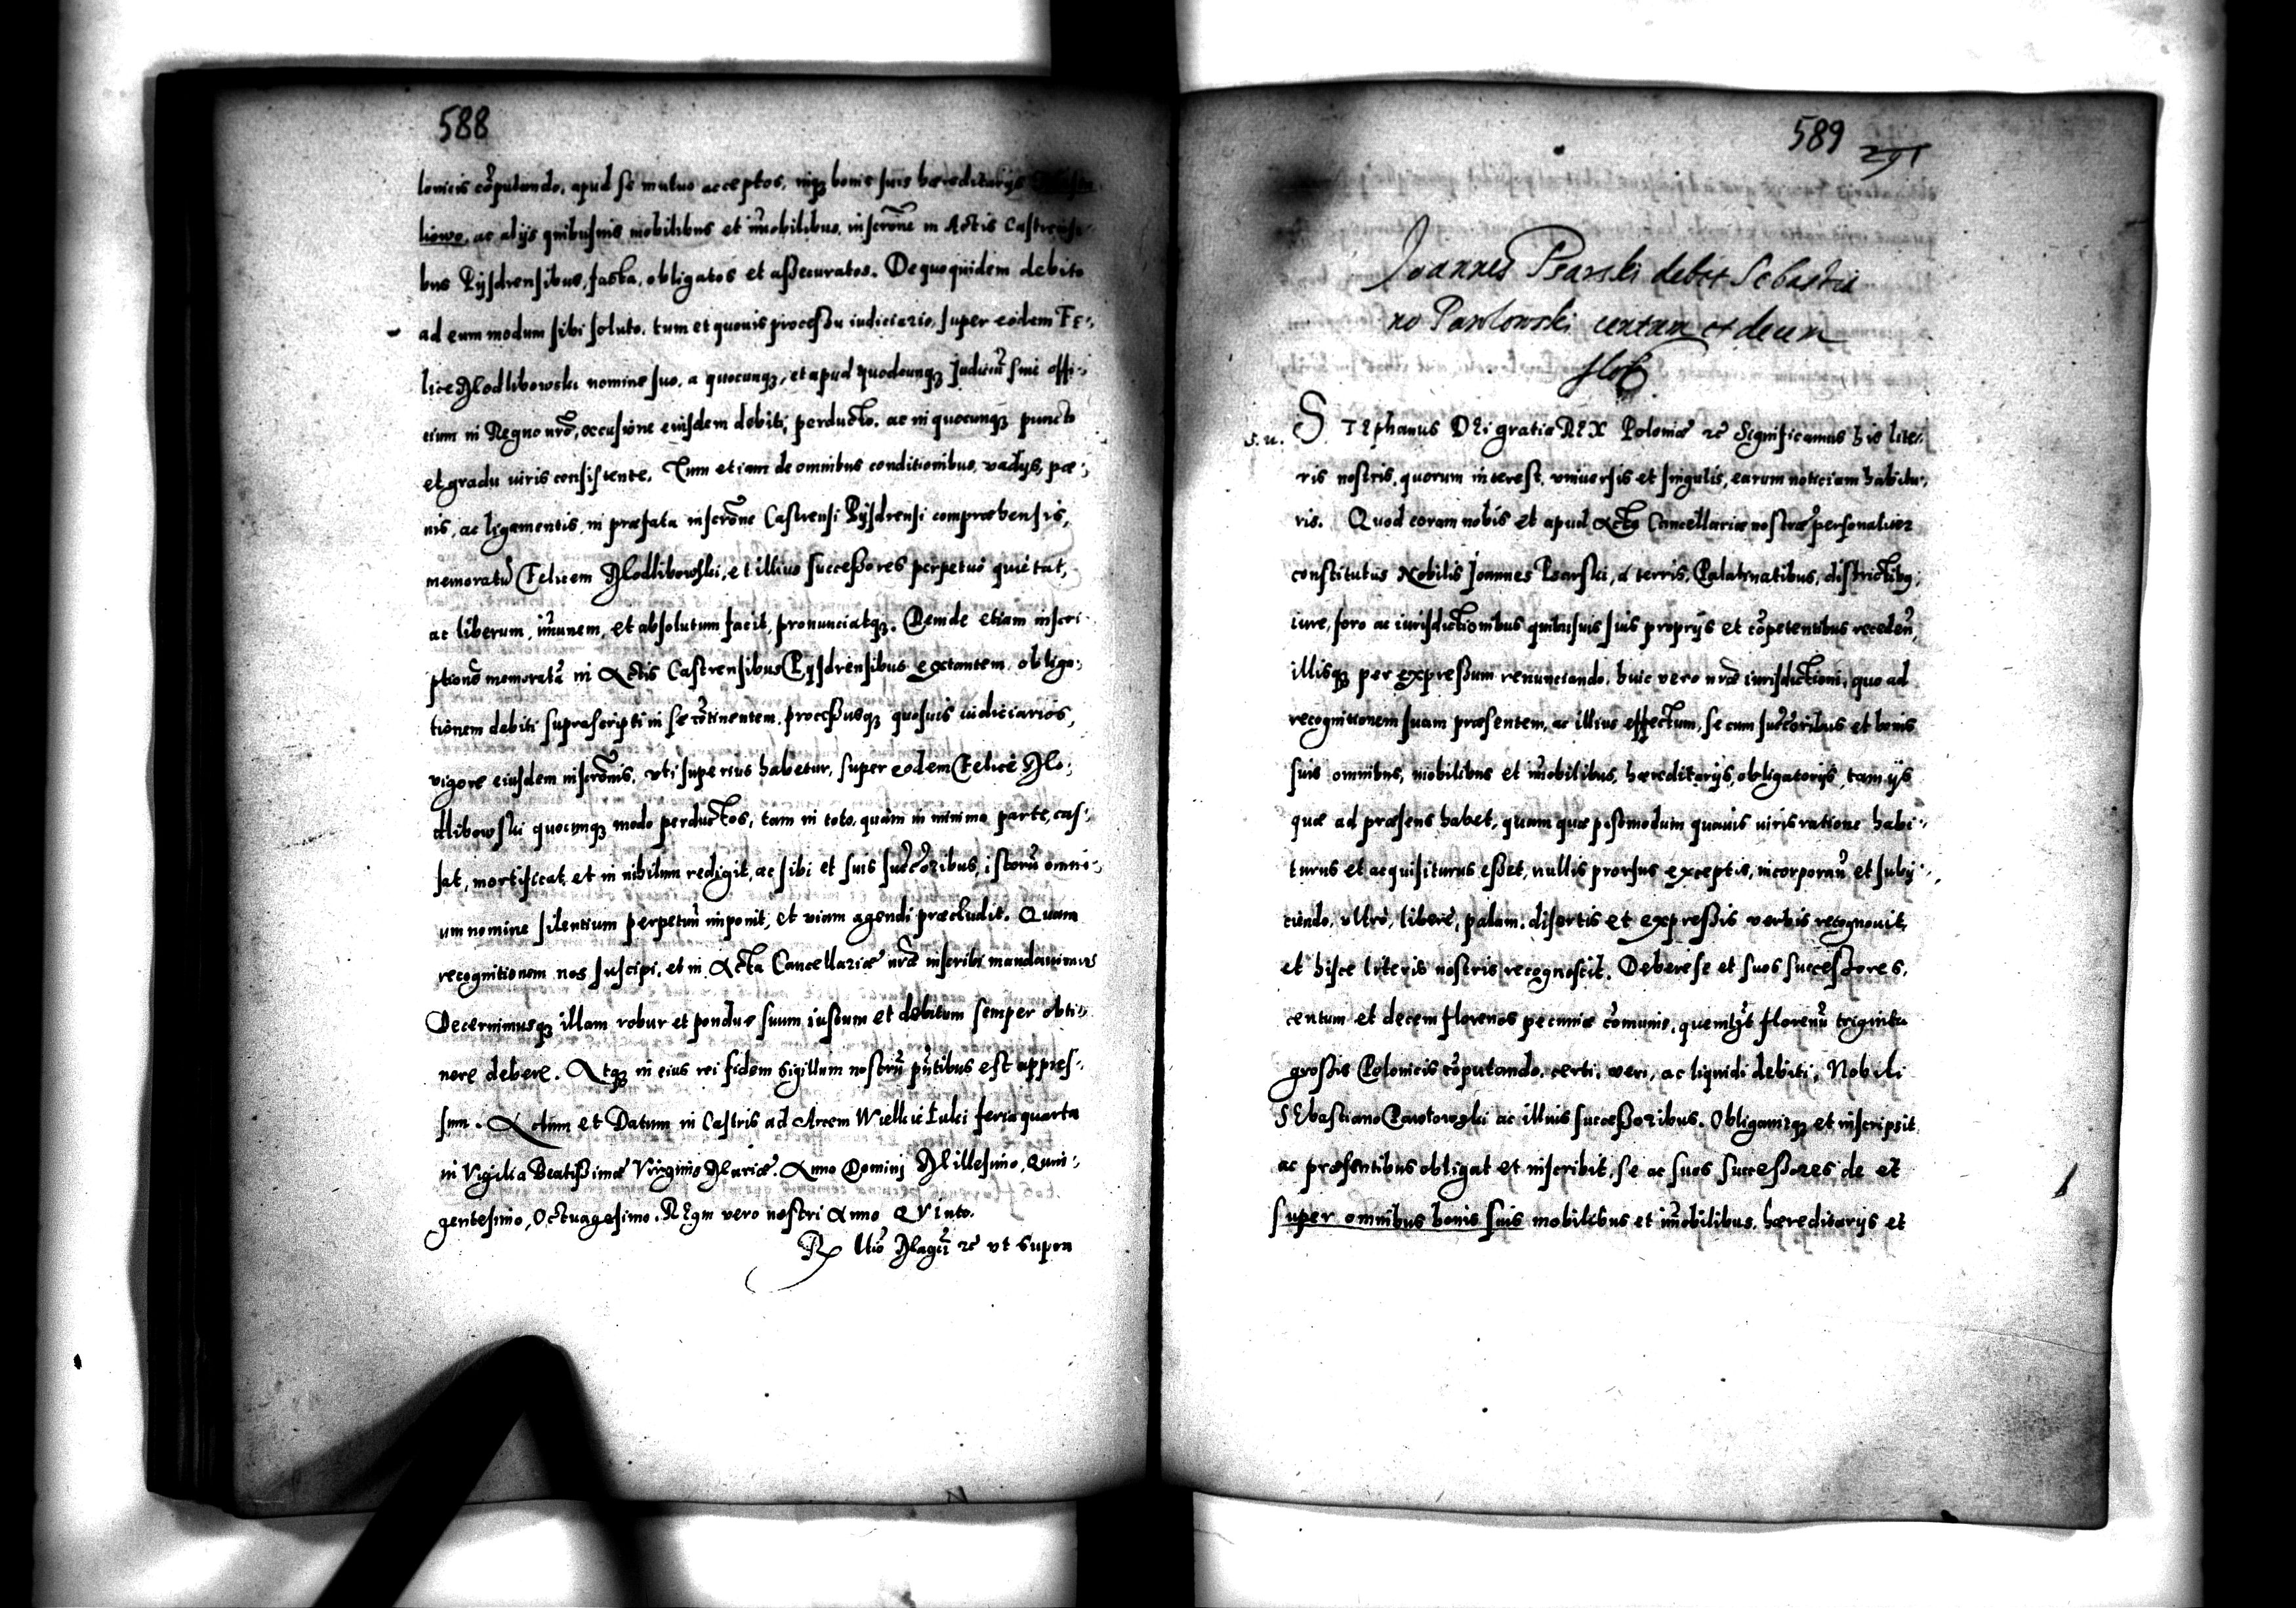 588
lonicis cõputando, apud se mutuo acceptos, inq₃ bonis suis hæreditarijs
liowo, ac alijs quibusuis mobilibus et im̃obilibus, inscrõne in Actis Castrensi-
bus Pijsdrensibus, facta, obligatos et aßecuratos. De quo quidem debito
ad eum modum sibi soluto, tum et quouis proceßu iudiciario, super eodem Fe-
lice Modlibowski nomine suo, a quocunq₃, et apud quodcunq₃ Judiciũ siue offi-
cium in Regno nrõ, occasione eiusdem debiti, perducto, ac in quocunq₃ puncto
et gradu iuris consistente, Tum etiam de omnibus conditionibus, vadijs, pœ-
nis, ac ligamentis, in præfata inscrõne Castrensi Pijsdrensi compræhensis,
memoratũ Felicem Modlibowski, et illius succeßores perpetuo quietat,
ac liberum, im̃unem, et absolutum facit, pronunciatq₃. Deinde etiam inscri-
ptionẽ memoratã in Actis Castrensibus Pijsdrensibus extantem obliga-
tionem debiti suprascripti in se cõtinentem, proceßusq₃ quosuis iudiciarios,
vigore eiusdem inscrõnis, vti superius habetur, super eodem Felice Mo-
dlibowski quocunq₃ modo perductos, tam in toto, quàm in minima parte, cas-
sat, mortificat, et in nihilum redigit, ac sibi et suis succ̃oribus, istorũ omni-
um nomine silentium perpetuũ imponit, et viam agendi præcludit. Quam
recognitionem nos suscipi, et in Acta Cancellariæ nræ̃ inscribi mandauimus
Decernimusq₃ illam robur et pondus suum iustum et debitum semper obti-
nere debere. Atq₃ in eius rei fidem sigillum nostrũ pñtibus est appres-
sum. Actum et Datum in Castris ad Arcem Wielkie Łuki feria quarta
in Vigilia Beatißimæ Virginis Mariæ. Anno Dominj Millesimo, Quin-
gentesimo, Octuagesimo. Regni vero nostri Anno QVinto.
Rx ũ Magcĩ zc̃ vt Supra
589
291
Joannes Psarski debet Sebastia
no Pawlowski centum et decem
flor
s. u.
STEphanus DEi gratia REX Poloniæ zc̃ Significamus his lite-
ris nostris, quorum interest, vniuersis et singulis, earum noticiam habitu-
ris. Quod coram nobis et apud Acta Cancellariæ nostræ personaliter
constitutus Nobilis Joannes Psarski, a terris, Palatinatibus, districtibq₃,
iure, foro ac iurisdictionibus quibusuis suis proprijs et cõpetentibus recedeñ,
illisq₃ per expreßum renunciando, huic vero nrãe iurisdictioni, quo ad
recognitionem suam præsentem, ac illius effectum, se cum succ̃oribus et bonis
suis omnibus, mobilibus et im̃obilibus, hæreditarijs, obligatorijs, tam ijs
quæ ad præsens habet, quam quæ postmodum quauis iuris ratione habi-
turus et acquisiturus eßet, nullis prorsus exceptis, incorporañ et subij-
ciendo, vltro, liberè, palam, disertis et expreßis verbis recognouit,
et hisce literis nostris recognoscit. Debere se et suos succeßores,
centum et decem florenos pecuniæ cõmunis, quemlib₃ florenũ triginta
großis Polonicis cõputando, certi, veri, ac liquidi debiti, Nobili
SEbastiano Pawłowski ac illius succeßoribus. Obligauitq₃ et inscripsit
ac præsentibus obligat et inscribit, se ac suos succeßores de et
super omnibus bonis suis mobilibus et im̃obilibus, hæreditarijs et